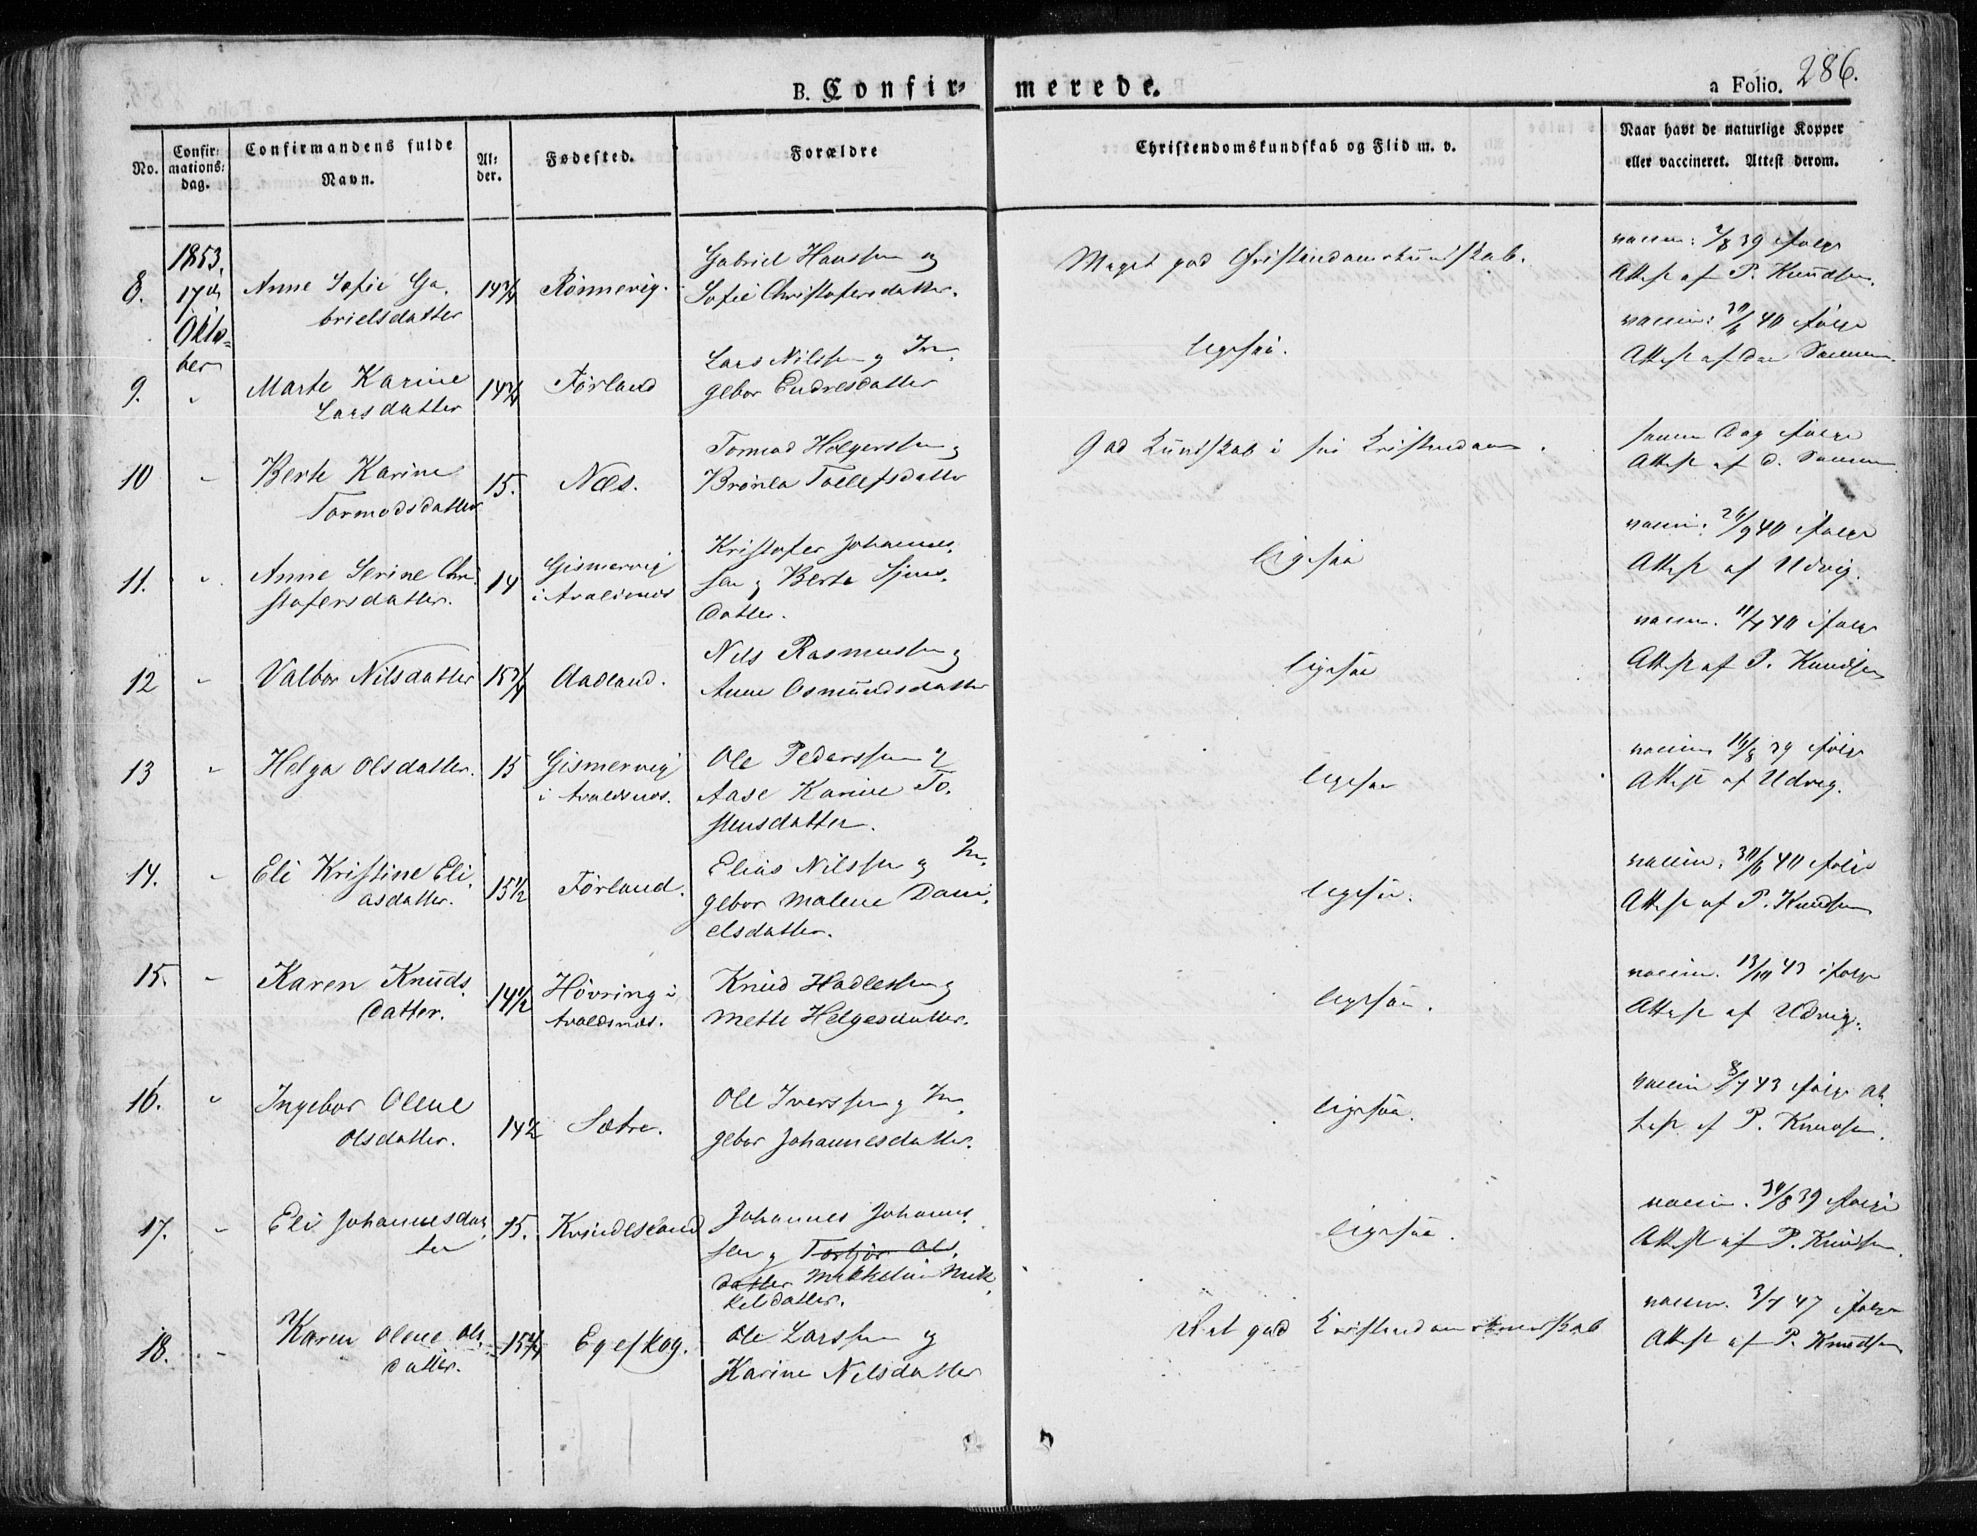 B. Confir= merede.
a Folio. 286.
No. Confir=mations=dag. Confirmandens fulde Navn. Al=der. Fødested. Forældre Christendomskundskab og Flid m. v. Naar havt de naturlige Kopper eller vaccineret. Attest derom.
1853. 17de Okto=ber
8. Anne Sofie Ga=
brielsdatter
Rønnevig.
Gabriel Hanssen og
Sofie Christofersdatter.
Meget god Christendomskundskab.
vaccin: 2/8 39 ifølge
Attest af P. Knudsen.
9. " Marte Karine
Larsdatter
Førland
Lars Nilssen og In=
gebor Endresdatter
ligesaa.
vaccin: 30/6 40 ifølge
Attest af den Samme.
10 " Berte Karine
Tormodsdatter
15. Næs.
Tormod Holgerssen og
Tollefsdatter
God Kundskab i sin Kristendom.
samme Dag ifølge
Attest af d. Samme
11. " Anne Serine Chri=
stofersdatter.
14 Gismervig
i Avaldsnæs
Kristofer Johannes=
sen og Berta
datter.
ligesaa
vaccin: 26/9 40 ifølge
Attest af Udvig.
12 " Valbor Nilsdatter
Aadland.
Nils Rasmussen og
Anne Osmundsdatter
ligesaa
vaccin. 11/7 40 ifølge
Attest af P. Knudsen
13 " Helga Olsdatter.
15 Gismervig
i Avaldsnæs.
Ole Pederssen og
Aase Karine To=
stensdatter.
ligesaa
vaccin 16/8 39 ifølge
Attest af Udvig.
14. " Eli Kristine Eli=
asdatter.
15½ Førland.
Elias Nilssen og In=
gebor Malene Dani=
elsdatter.
ligesaa.
vaccin: 30/6 40 ifølge
Attest af P. Knudsen
15. " Karen Knuds=
datter.
14½ Høvring i
Avaldsnæs.
Knud Hadlessen og
Mette Helgesdatter.
ligesaa.
vaccin. 13/10 43 ifølge
Attest af Udvig.
16. " Ingebor Olene
Olsdatter.
14½ Sætre.
Ole Iverssen og In=
gebor Johannesdatter.
ligesaa.
vaccin 8/7 43 ifølge At=
test af P. Knudsen.
17. " Eli Johannesdat=
ter
15. Kvindesland
Johannes Johannes=
sen og Torbjør Ols=
datter Mikkeline Mik=
kelsdatter.
ligesaa.
vaccin. 30/8 39 ifølge
Attest af P. Knudsen.
18. " Karen Olene Ols=
datter.
Egeskog.
Ole Larssen og
Karine Nilsdatter
god Kristendomskundskab
vaccin. 3/7 47 ifølge
Attest af P. Knudsen